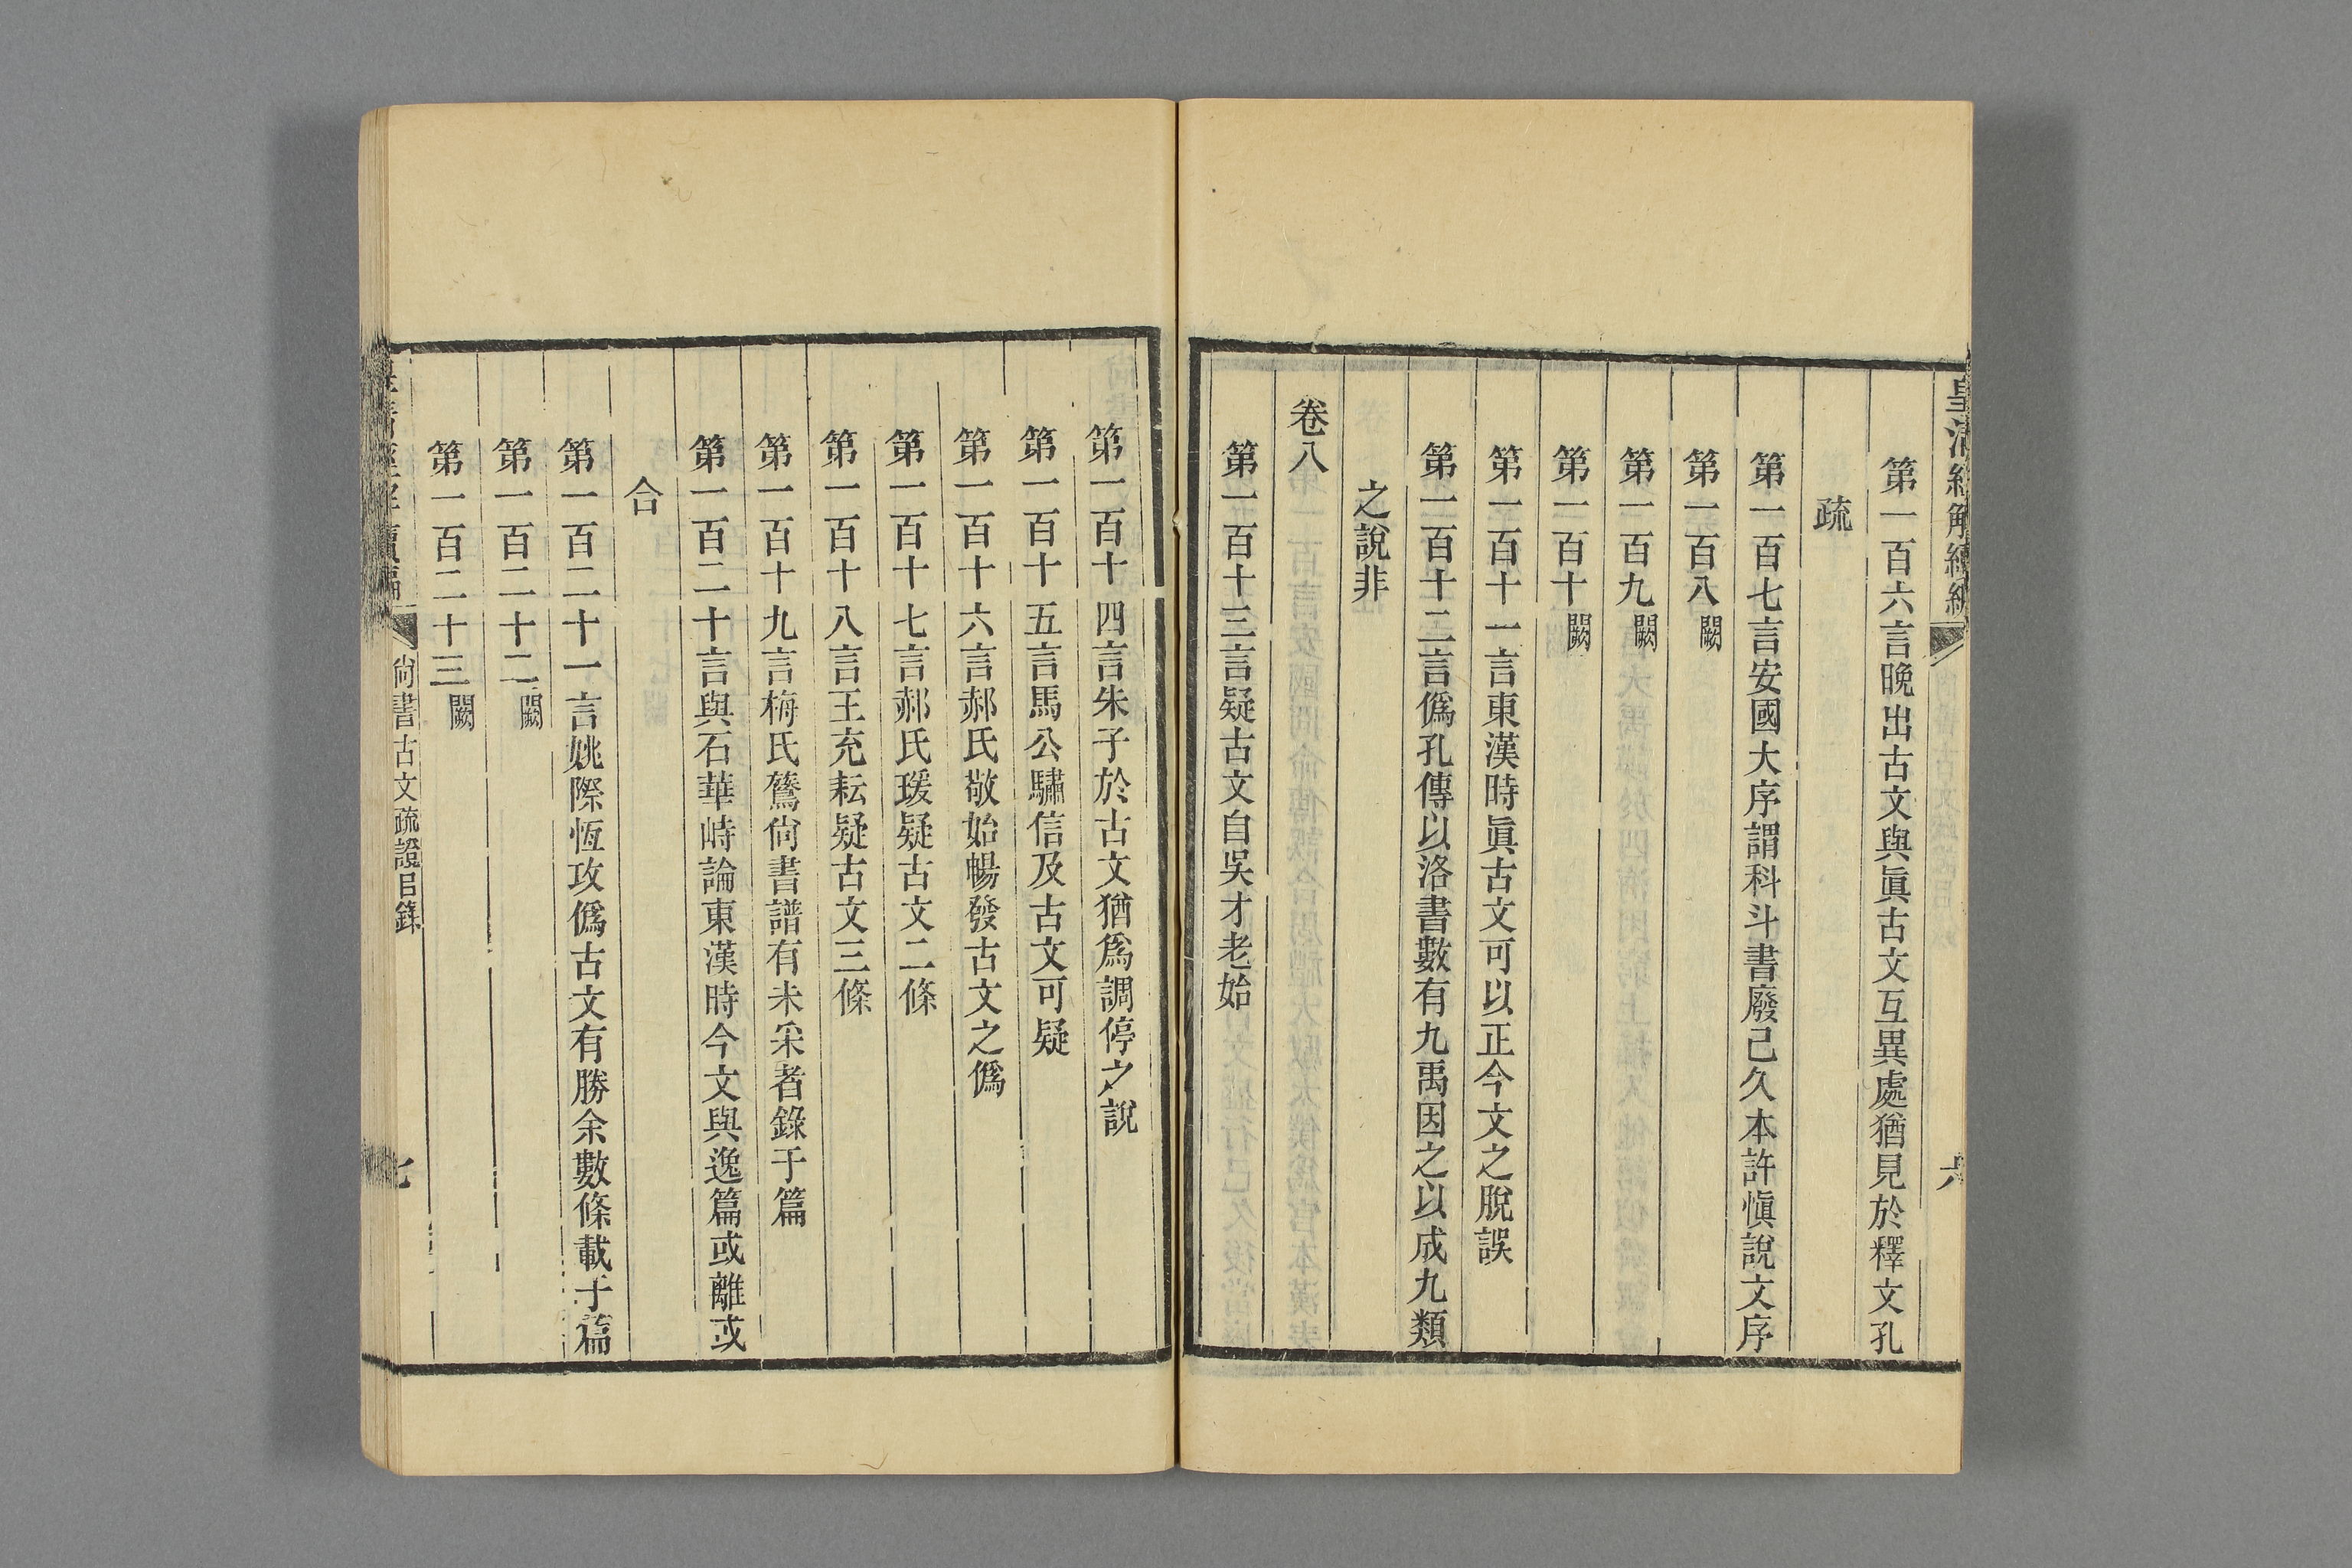 皇清經解續編
六
第一百六言晚出古文與眞古文互異處猶見於釋文孔
疏
第一百七言安國大序謂科斗書廢己久本許愼說文序
第一百八闕
第一百九闕
第一百十闕
第一百十一言東漢時眞古文可以正今文之脫誤
第一百十二言僞孔傳以洛書數有九禹因之以成九類
之說非
卷八
第一百十三言疑古文自吳才老始
第一百十四言朱子於古文猶爲調停之說
第一百十五言馬公驌信及古文可疑
第一百十六言郝氏敬始暢發古文之僞
第一百十七言郝氏瑗疑古文二條
第一百十八言王充耘疑古文三條
第一百十九言梅氏鷟尙書譜有未采者錄于篇
第一百二十言與石華峙論東漢時今文與逸篇或離或
合
第一百二十一言姚際恆攻僞古文有勝余數條載于篇
第一百二十二闕
第一百二十三闕
皇清經解續編
尙書古文疏證目錄
七